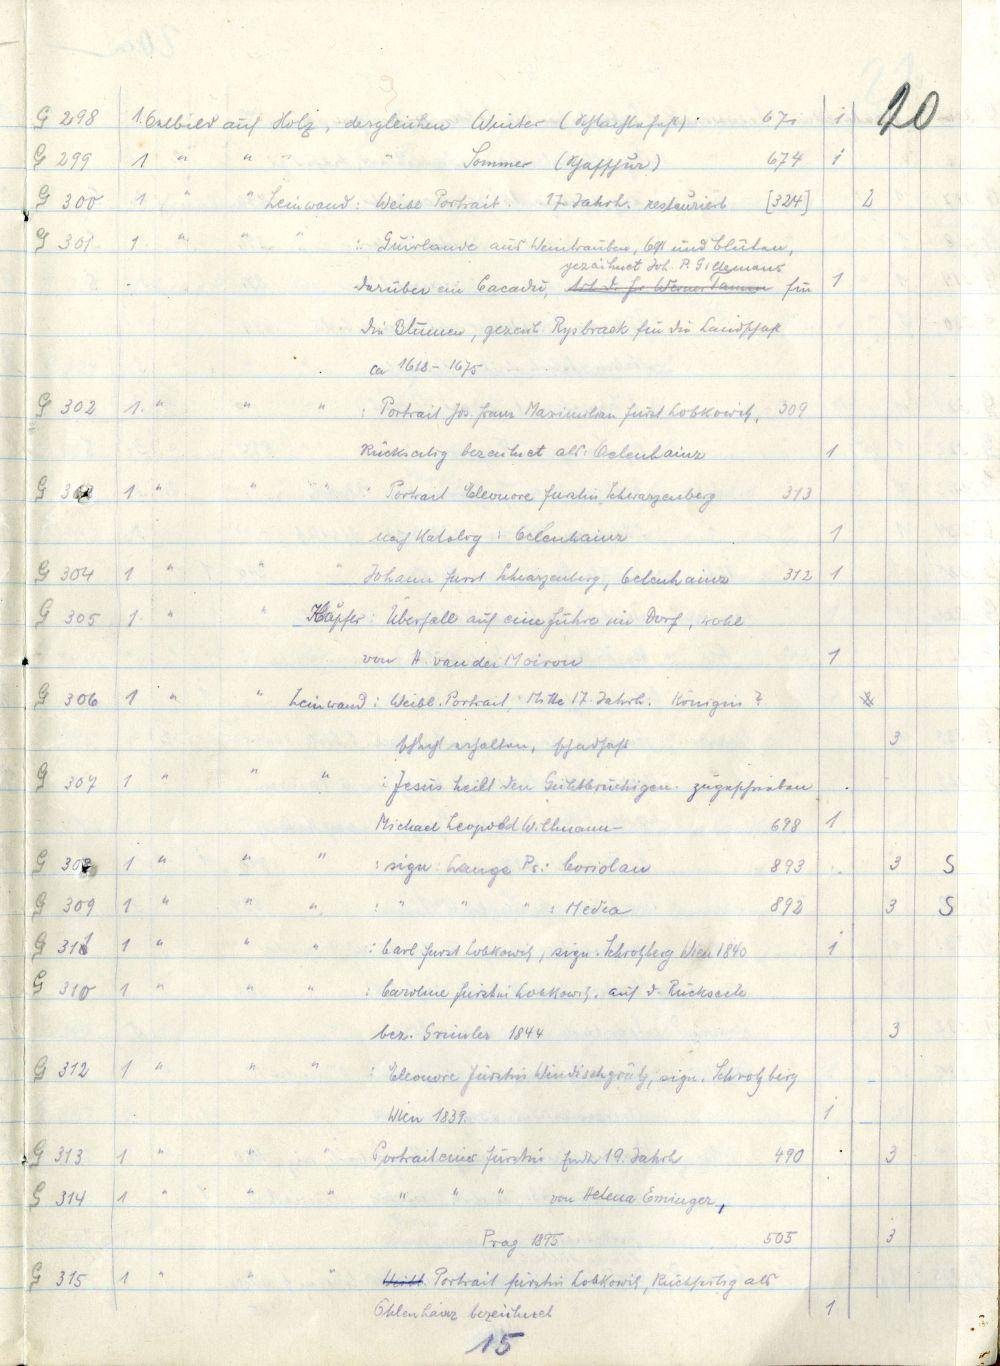 20
G 298 1. Oelbild auf Holz, desgleichen Winter (Schlachtschaft) 671 1
G 299 1 " " " " Sommer (Schafschur) 674 1
G 300 1 " " Leinwand: Weibl Portrait. 17. Jahrh. restauriert [324] 2
G 301 1 " " " : Guirlande aus Weintrauben, Obst und Blüten,
gezeichnet Joh. P. Gillemans
darüber ein Cacadu, Art d. fr Werner Tamm für 1
die Blumen, gezeich. Rysbraek für die Landschaft
ca 1618 - 1675
G 302 1. " " " : Portrait Jos. Franz Maximilian Fürst Lobkowitz, 309
Rückseitig bezeichnet als: Oelenhainz 1
G 303 1 " " " : Portrait Eleonore Fürstin Schwarzenberg 313
nach Katalog : Oelenhainz 1
G 304 1 " " " Johann Fürst Schwarzenberg, Oelenhainz 312 1
G 305 1 " " Kupfer : Überfall auf eine Fuhre im Dorf, wohl
von H. van der Moiron 1
G 306 1 " " Leinwand : Weibl. Portrait, Mitte 17. Jahrh. Königin ?
schlecht erhalten, schadhaft 3
G 307 1 " " " : Jesus heilt den Gichtbrüchigen. zugeschrieben
Michael Leopold Willmann 698 1
G 308 1 " " " : sign: Lange Ps: Coriolan 893 3 S
G 309 1 " " " : " " " : Medea 892 3 S
G 311 1 " " " : Carl Fürst Lobkowitz, sign. Schrotzberg Wien 1840 1
G 310 1 " " " : Caroline Fürstin Lobkowitz. auf d. Rückseite
bez. Grünler 1844 3
G 312 1 " " " : Eleonore Fürstin Windischgrätz, sign. Schrotzberg
Wien 1839. 1
G 313 1 " " " Portrait einer Fürstin Ende 19. Jahrh 490 3
G 314 1 " " " " " " von Helena Eminger,
Prag 1895 505 3
G 315 1 " " " Weibl. Portrait Fürstin Lobkowitz, Rückseitig als
Ohlenhainz bezeichnet 1
15